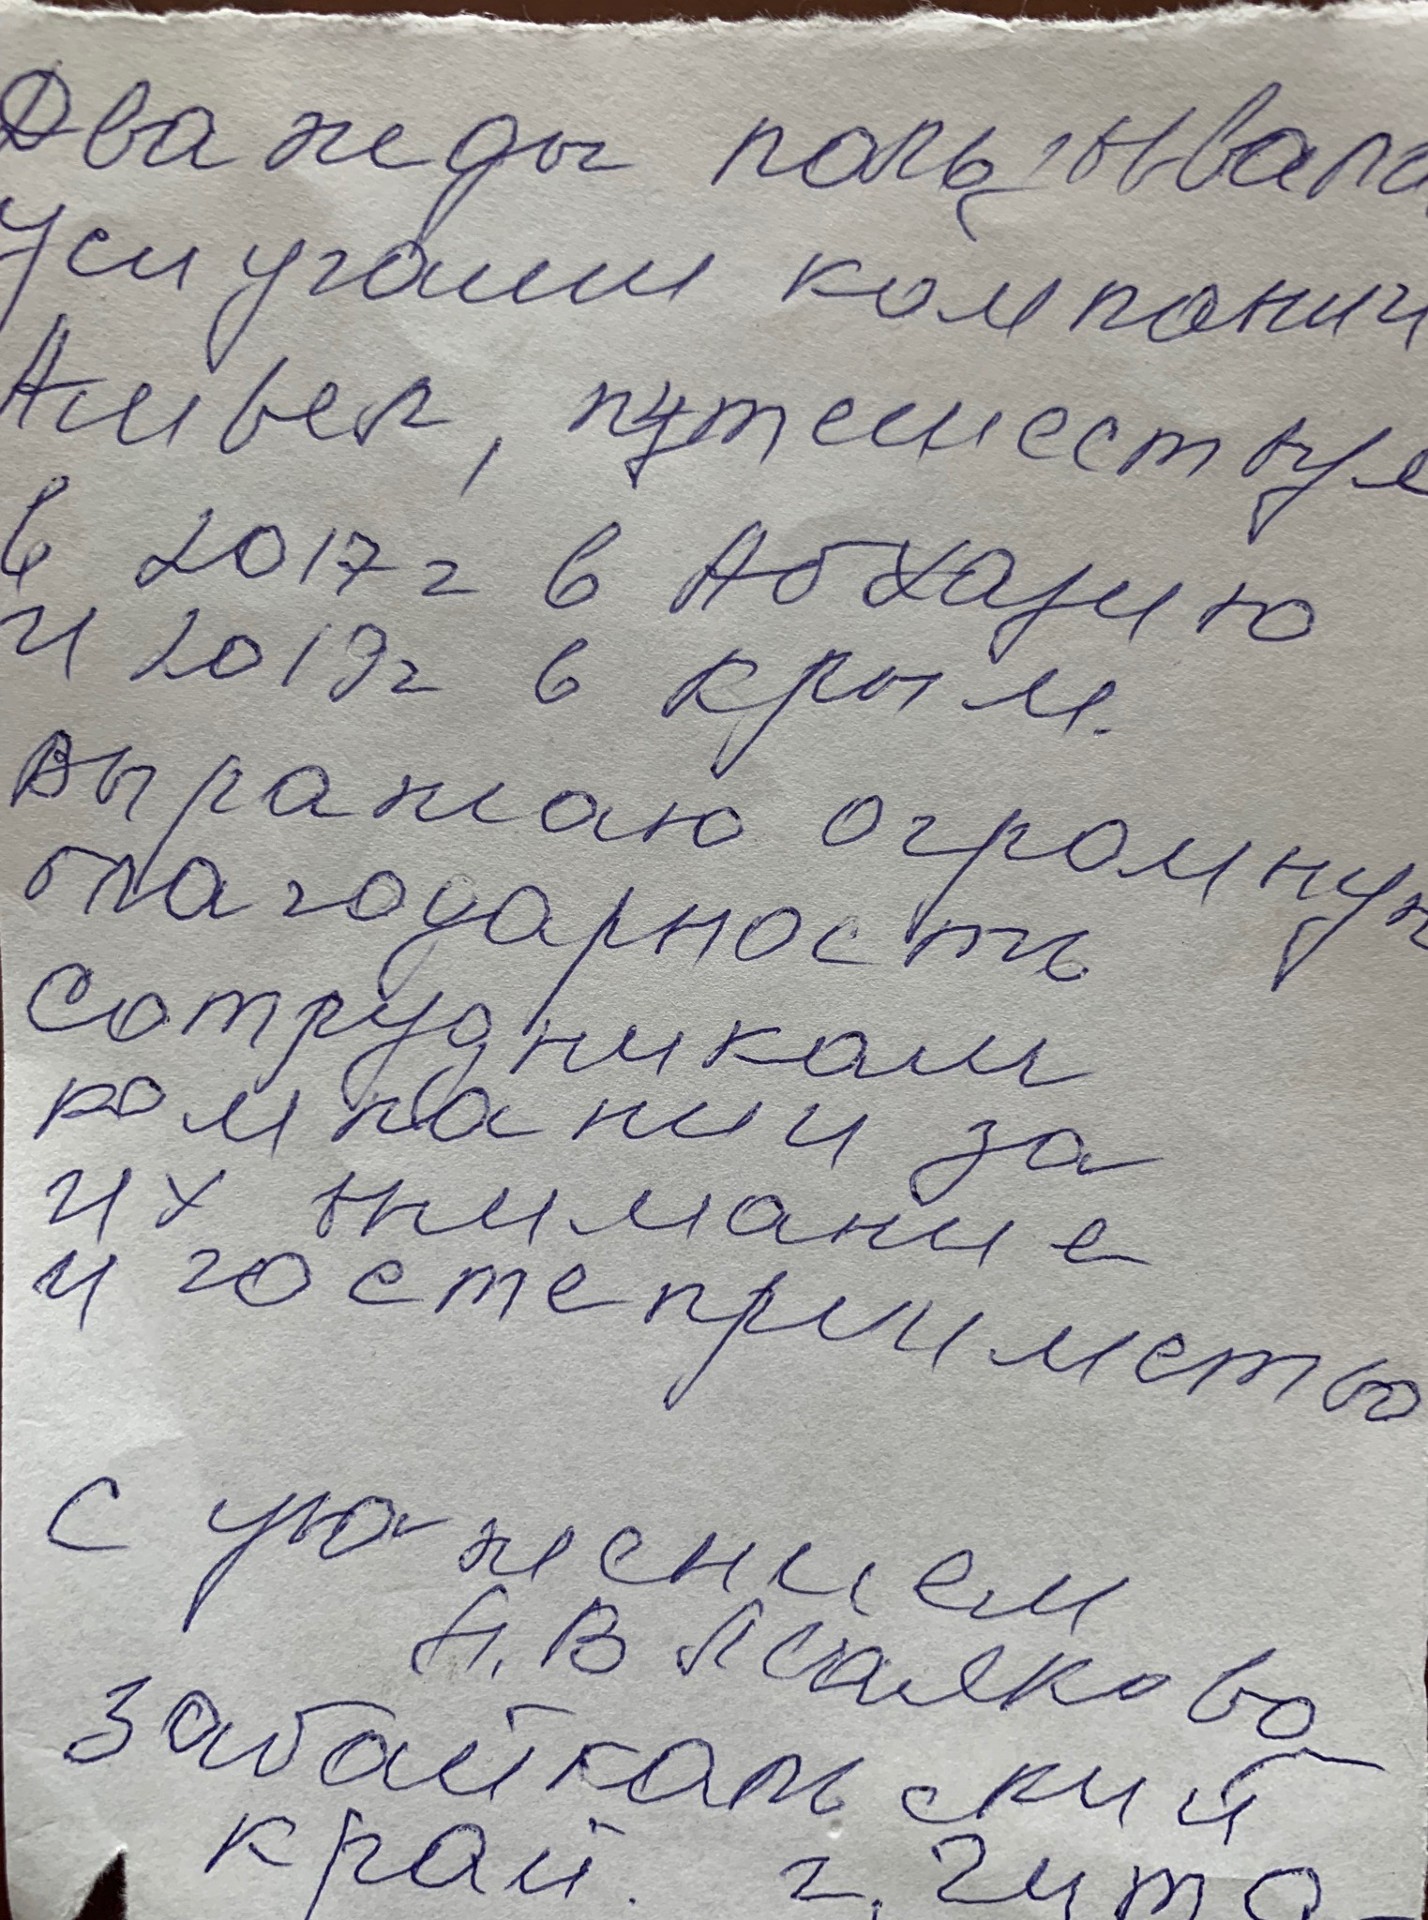 Дважды пользывала
услугами компании
Анвел, путешествуе
в 2017г в Абхазию
и 2019г в Крым.
Выражаю огромную
благодарность
сотрудникам
компании за
их внимание
и гостеприимство
С уважением
А.В
Забайкальский
край. г. Чита